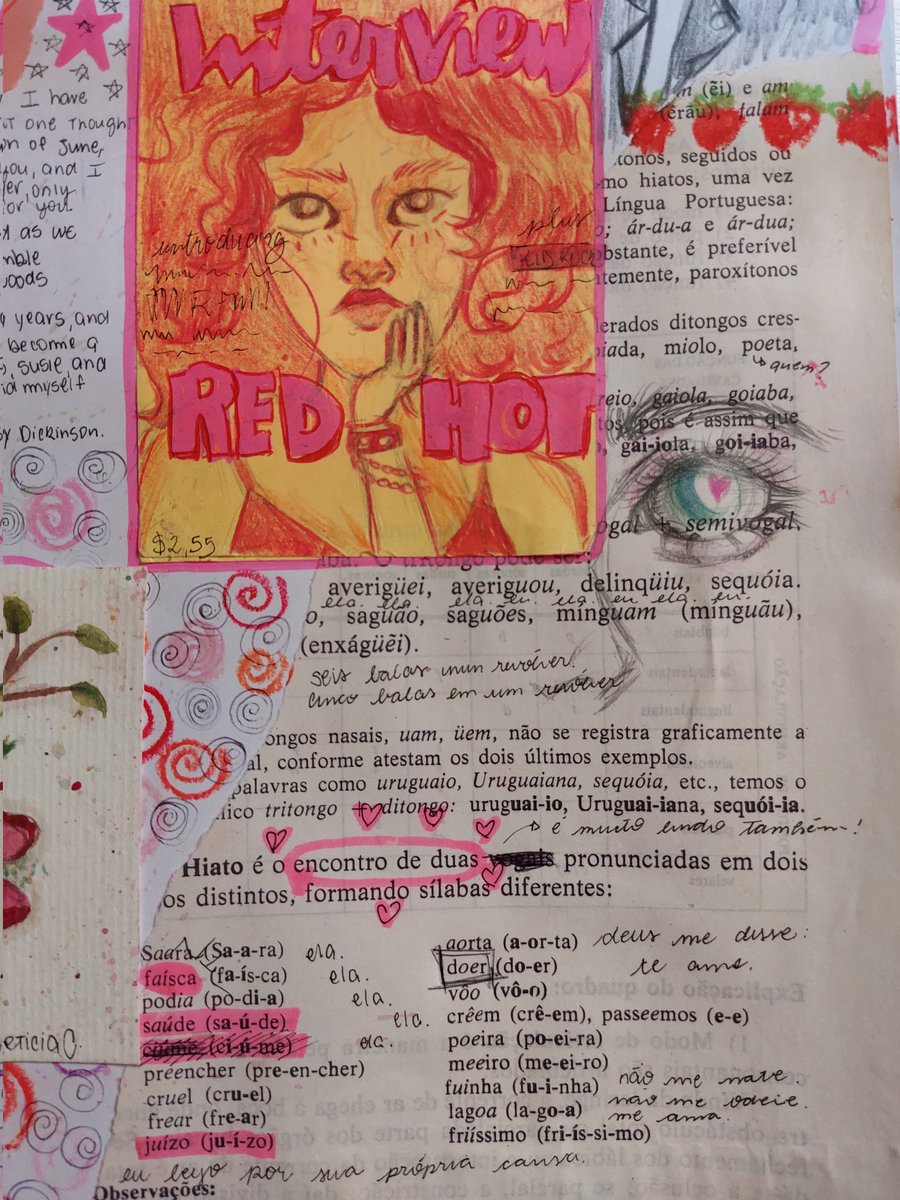 Interview
I have
one thought
of June,
you, and I
only
for you
as we
years, and
become a
susie, and
myself
Dickinson.
introducing
plus
RED HOT
$2,55
(ẽi) e am
(ẽrãu), falam
tonos, seguidos ou
mo hiatos, uma vez
Língua Portuguesa:
o; ár-du-a e ár-dua;
obstante, é preferível
temente, paroxítonos
erados ditongos cres-
iada, miolo, poeta,
quem?
reio, gaiola, goiaba,
tos, pois é assim que
gai-iola, goi-iaba,
ogal + semivogal.
aba. O tritongo pode ser:
averigüei, averiguou, delinqüiu, sequóia.
ela. ela. ela. eu. ela. eu. ela. eu.
o, saguão, saguões, minguam (minguãu),
(enxágüẽi).
seis balas num revólver.
cinco balas em um revólver
ongos nasais, uam, üem, não se registra graficamente a
al, conforme atestam os dois últimos exemplos.
palavras como uruguaio, Uruguaiana, sequóia, etc., temos o
nico tritongo + ditongo: uruguai-io, Uruguai-iana, sequói-ia.
é muito lindo também!
Hiato é o encontro de duas vogais pronunciadas em dois
os distintos, formando sílabas diferentes:
Saara (Sa-a-ra) ela.
faísca (fa-ís-ca) ela.
podia (po-di-a) ela.
saúde (sa-ú-de) ela.
ciúme (ci-ú-me) ela.
preencher (pre-en-cher)
cruel (cru-el)
frear (fre-ar)
juízo (ju-í-zo)
aorta (a-or-ta) deus me disse:
doer (do-er) te amo.
vôo (vô-o)
crêem (crê-em), passeemos (e-e)
poeira (po-ei-ra)
meeiro (me-ei-ro)
fuinha (fu-i-nha) não me mate
lagoa (la-go-a) não me odeie.
me ama.
friíssimo (fri-ís-si-mo)
eu por sua própria causa.
Observações: